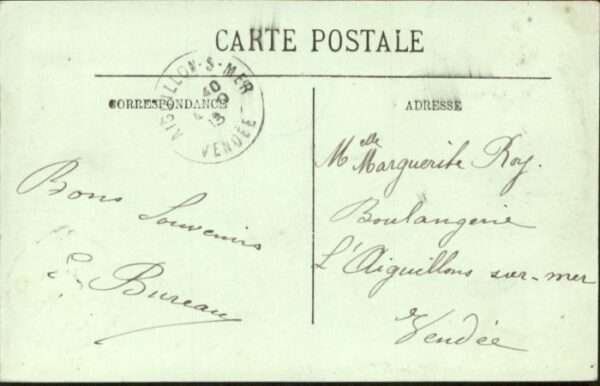 CARTE POSTALE
CORRESPONDANCE
ADRESSE
AIGUILLON-S-MER
VENDÉE
Bons Souvenirs
E. Bureau
Melle Marguerite Roy.
Boulangerie
L'Aiguillons sur-mer
Vendée